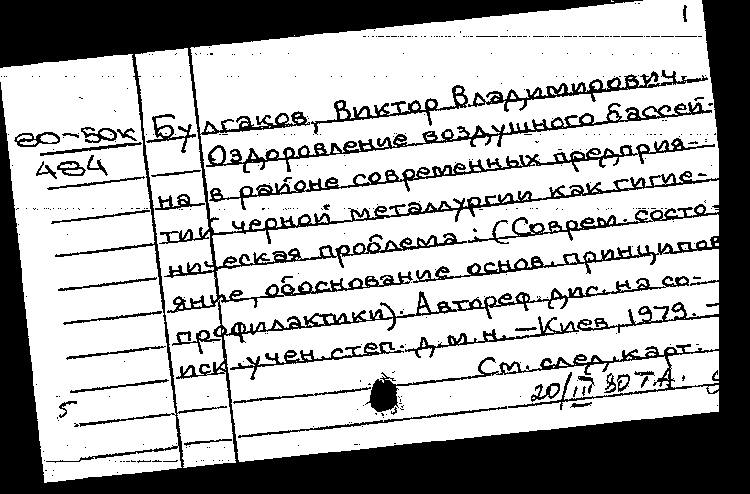 1
80-50к
484
Булгаков, Виктор Владимирович.
Оздоровление воздушного бассей-
на в районе современных предприя-
тий черной металлургии как гигие-
ническая проблема: (Соврем. состо-
яние, обоснование основ. принципов
профилактики). Автореф. дис. на со-
иск. учен. степ. д.м.н. – Киев, 1979. –
См. след. карт.
20/III 80 Т.А.
5